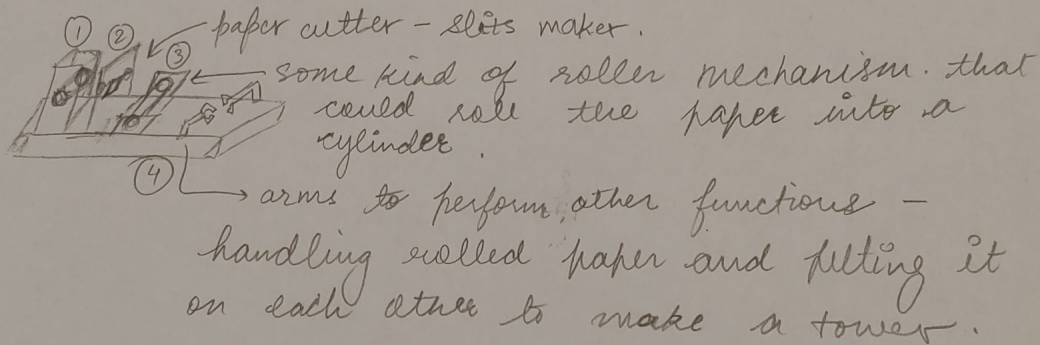 ① ② paper cutter - slits maker.
③ some kind of roller mechanism. that
could roll the paper into a
cylinder.
④ arms to perform other functions -
handling rolled paper and pilling it
on each other to make a tower.